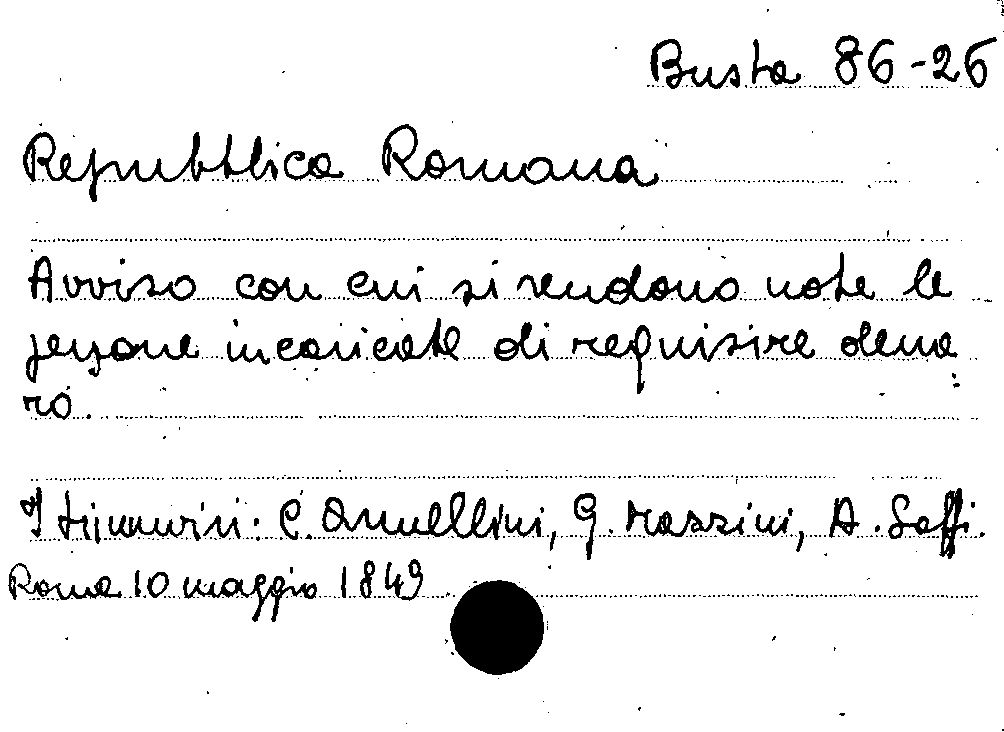 Busta 86-26
Repubblica Romana
Avviso con cui si rendono note le
persone incaricate di requisire dena
ro.
I triumviri: C. Armellini, G. Mazzini, A. Saffi.
Roma 10 maggio 1849